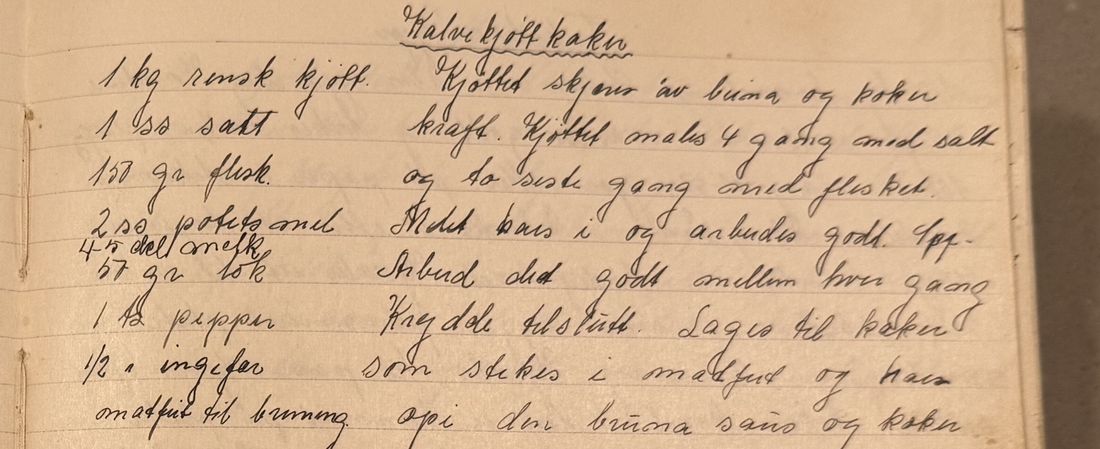 Kalvekjøttkaker
1 kg rensk kjøtt.
1 ss salt
150 gr flesk.
2 ss potetsmel
4-5 del melk
50 gr løk
1 ts pepper
1/2 " ingefær
matfett til bruning.
Kjøttet skjæres av beina og koker
kraft. Kjøttet males 4 gang med salt
og to siste gang med flesket.
Melet haes i og arbeides godt.
Arbeid det godt mellem hver gang
Krydde tilslutt. Lages til kaker
som stekes i matfett og haes
opi den bruna saus og koker